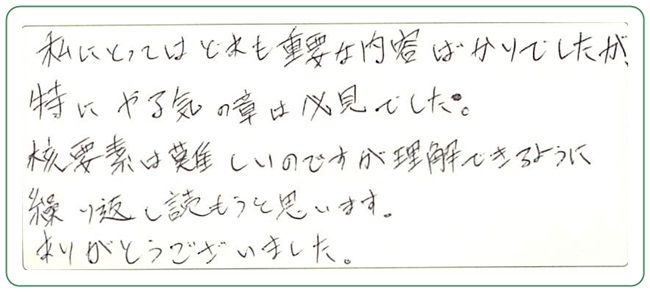 私にとってはどれも重要な内容ばかりでしたが、
特にやる気の章は必見でした。
核要素は難しいのですが理解できるように
繰り返し読もうと思います。
ありがとうございました。